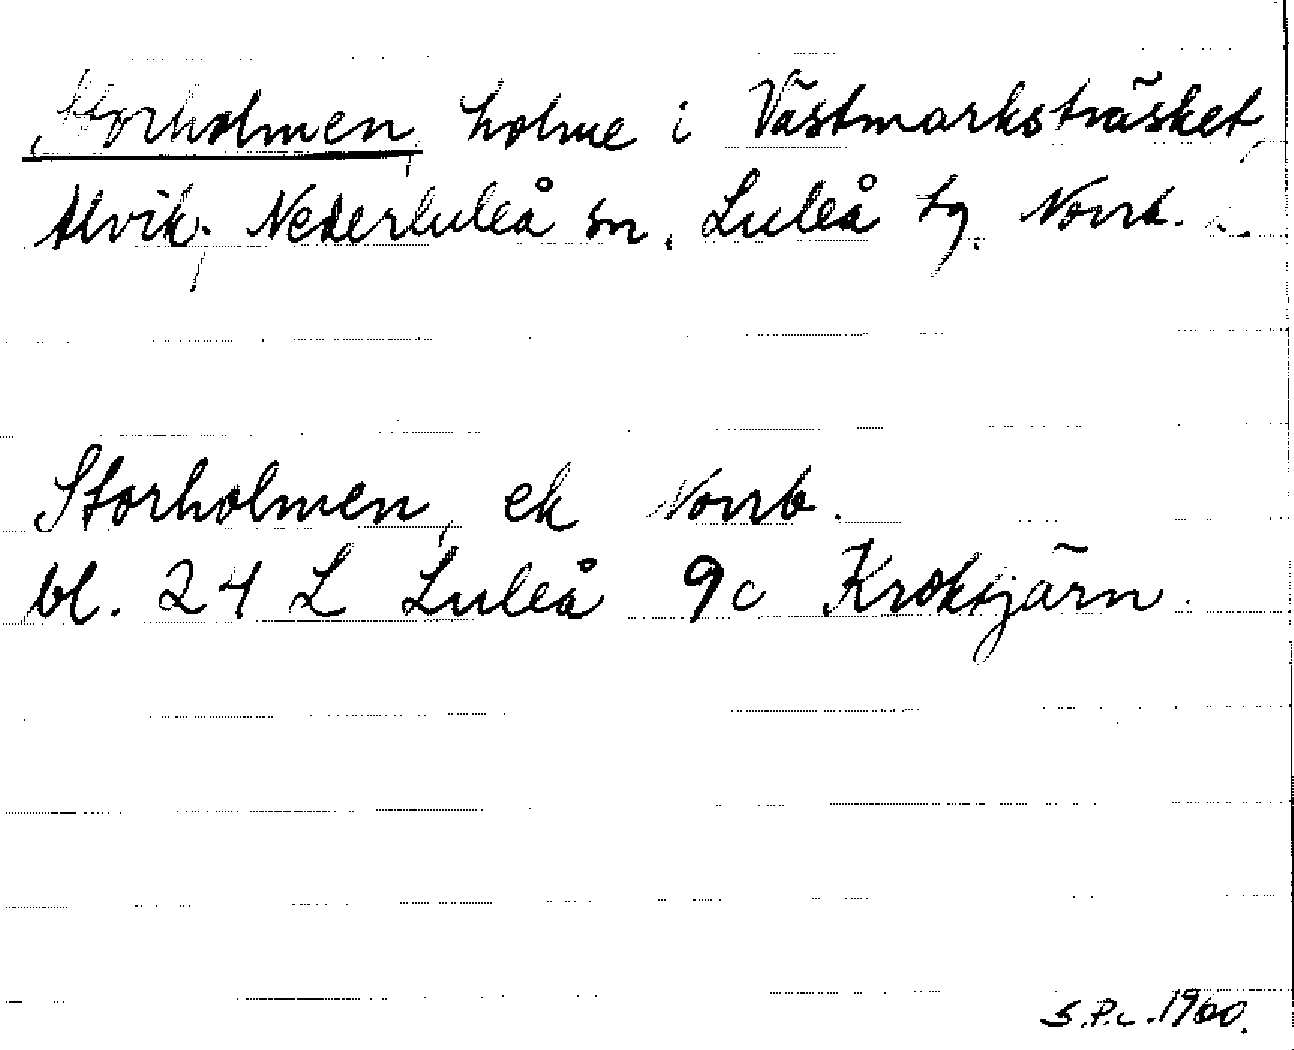 Storholmen, holme i Västmarksträsket,
Alvik, Nederluleå sn, Luleå tg. Norrb.
Storholmen, ek Norrb.
bl. 24 L Luleå 9c Kroktjärn.
S.P.L. 1960.